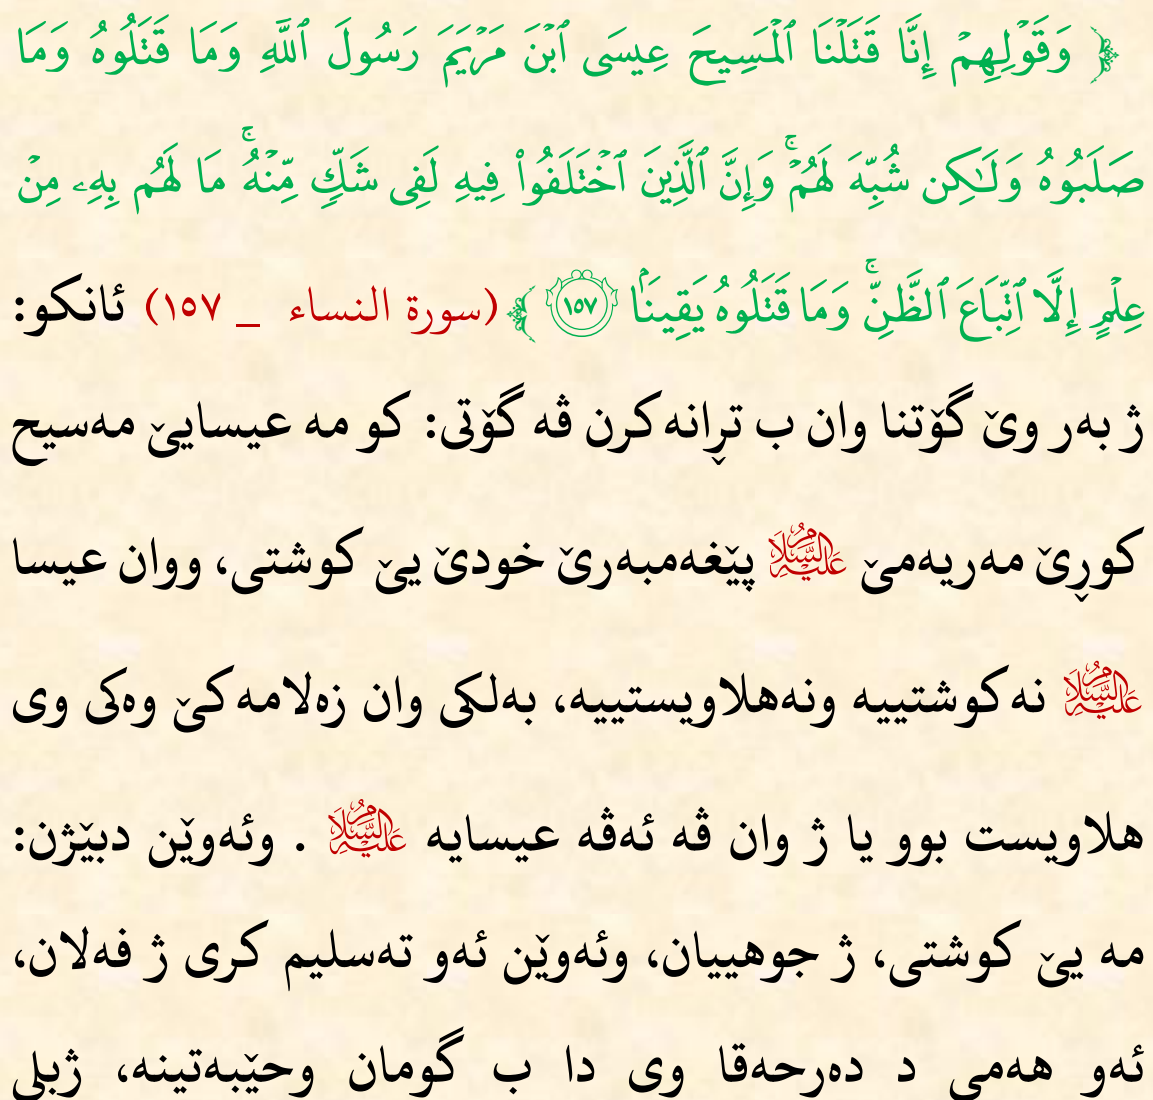 ﴿ وَقَوْلِهِمْ إِنَّا قَتَلْنَا ٱلْمَسِيحَ عِيسَى ٱبْنَ مَرْيَمَ رَسُولَ ٱللَّهِ وَمَا قَتَلُوهُ وَمَا
صَلَبُوهُ وَلَـٰكِن شُبِّهَ لَهُمْۚ وَإِنَّ ٱلَّذِينَ ٱخْتَلَفُوا۟ فِيهِ لَفِى شَكٍّ مِّنْهُۚ مَا لَهُم بِهِۦ مِنْ
عِلْمٍ إِلَّا ٱتِّبَاعَ ٱلظَّنِّۚ وَمَا قَتَلُوهُ يَقِينًۢا ١٥٧ ﴾ (سورة النساء _ ١٥٧) ئانكو:
ژ بەر وێ گۆتنا وان ب ترانەكرن ڤە گۆتى: كو مە عیسایێ مەسیح
كورێ مەریەمێ عَلَيْهِ السَّلَام پێغەمبەرێ خودێ یێ كوشتى، ووان عیسا
عَلَيْهِ السَّلَام نەكوشتییە ونەهلاویستییە، بەلكى وان زەلامەكێ وەكى وى
هلاویست بوو یا ژ وان ڤە ئەڤە عیسایە عَلَيْهِ السَّلَام . وئەوێن دبێژن:
مە یێ كوشتى، ژ جوهییان، وئەوێن ئەو تەسلیم كرى ژ فەلان،
ئەو هەمى د دەرحەقا وى دا ب گومان وحێبەتینە، ژبلى